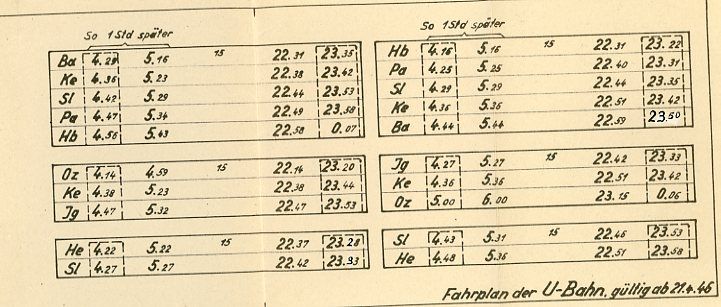 So 1 Std später
Ba 4.29 5.16 15 22.31 23.35
Ke 4.36 5.23 22.38 23.42
Sl 4.42 5.29 22.44 23.53
Pa 4.47 5.34 22.49 23.58
Hb 4.56 5.43 22.58 0.07
Oz 4.14 4.59 15 22.14 23.20
Ke 4.38 5.23 22.38 23.44
Jg 4.47 5.32 22.47 23.53
He 4.22 5.22 15 22.37 23.28
Sl 4.27 5.27 22.42 23.33
So 1 Std später
Hb 4.16 5.16 15 22.31 23.22
Pa 4.25 5.25 22.40 23.31
Sl 4.29 5.29 22.44 23.35
Ke 4.36 5.36 22.51 23.42
Ba 4.44 5.44 22.59 23.50
Jg 4.27 5.27 15 22.42 23.33
Ke 4.36 5.36 22.51 23.42
Oz 5.00 6.00 23.15 0.06
Sl 4.43 5.31 15 22.46 23.53
He 4.48 5.36 22.51 23.58
Fahrplan der U-Bahn, gültig ab 21.4.46